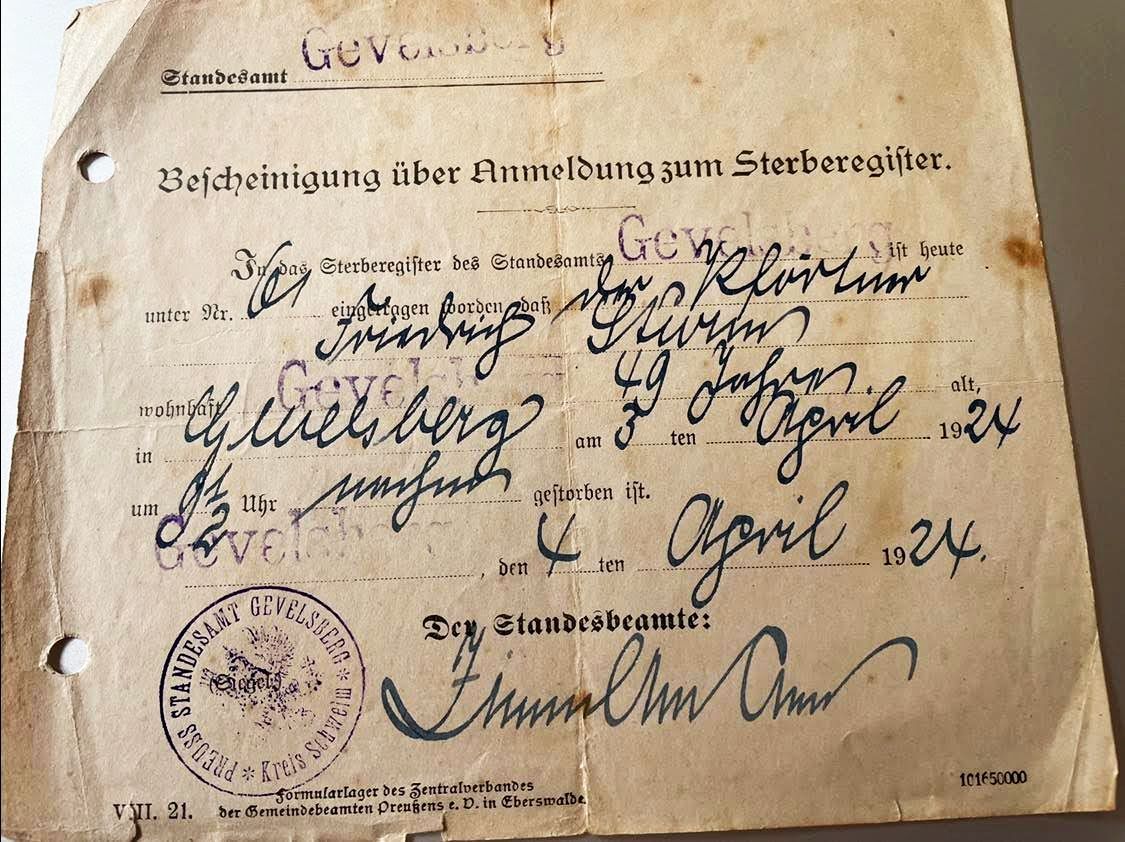 Standesamt Gevelsberg
Bescheinigung über Anmeldung zum Sterberegister.
In das Sterberegister des Standesamts Gevelsberg ist heute
unter Nr. 61 eingetragen worden, daß der Pförtner
Friedrich Sturm
49 Jahre alt,
wohnhaft Gevelsberg
in Gevelsberg am 3 ten April 1924
um 9 1/2 Uhr nachm gestorben ist.
Gevelsberg, den 4 ten April 1924.
Der Standesbeamte:
PREUSS STANDESAMT GEVELSBERG * Kreis Schwelm *
(Siegel)
Formularlager des Zentralverbandes
V. II. 21. der Gemeindebeamten Preußens e. V. in Eberswalde.
101650000